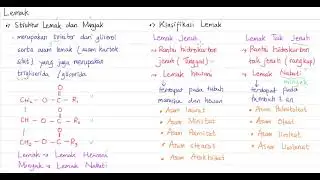 Lemak
Struktur Lemak dan Minyak
- merupakan ester dari gliserol
serta asam lemak (asam karbok
silat) yang juga merupakan
trigliserida / gliserida
O
CH₂ - O - C - R₁
O
CH - O - C - R₂
O
CH₂ - O - C - R₃
Lemak → Lemak Hewani
Minyak → Lemak Nabati
Klasifikasi Lemak
Lemak Jenuh
Rantai hidrokarbon
jenuh (Tunggal)
Lemak hewani
terdapat pada tubuh
manusia dan hewan
Asam laurat
Asam Miristat
Asam Palmitat
Asam stearat
Asam Arakhidat
Lemak Tak Jenuh
Rantai hidrokarbon
tak jenuh (rangkap)
Lemak Nabati
minyak
terdapat pada
tumbuhan
Asam Palmitoleat
Asam Oleat
Asam linoleat
Asam Linolenat